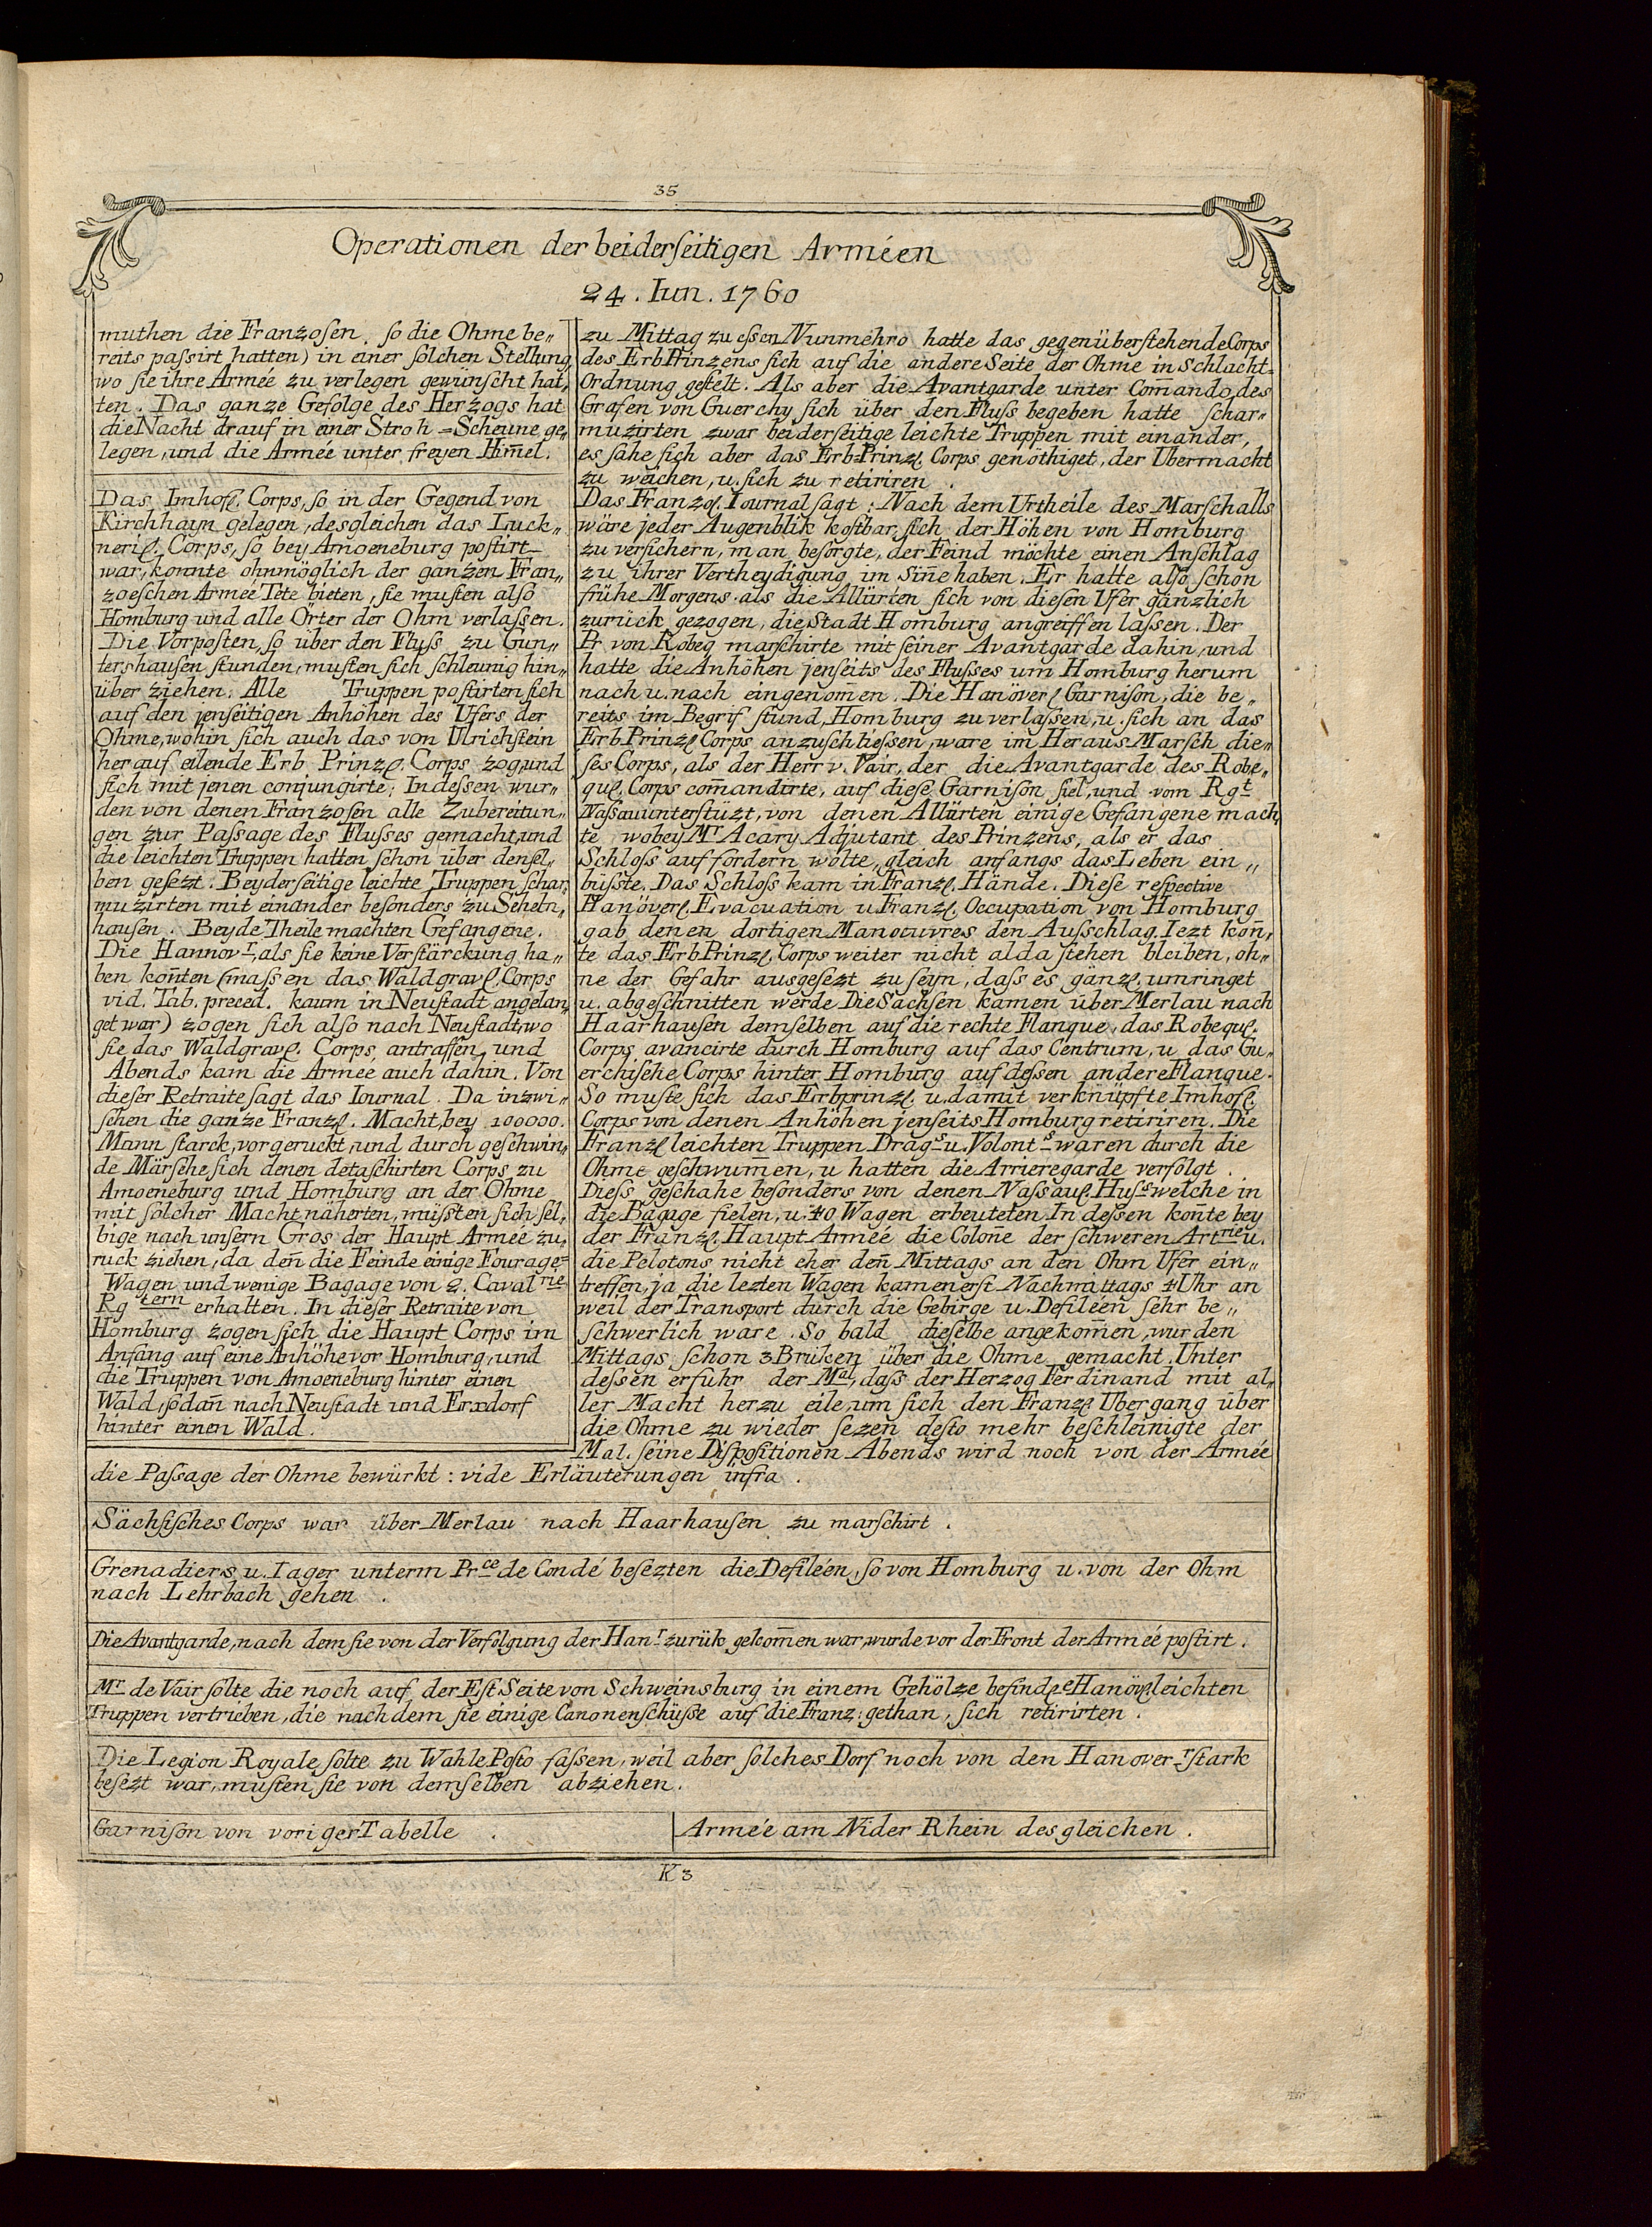 35
Operationen der beiderſeitigen Arméen
24. Iun. 1760
muthen die Franzoſen, ſo die Ohme be„
reits paſsirt hatten) in einer ſolchen Stellung,
wo ſie ihre Armée zu verlegen gewünſcht hat„
ten. Das ganze Gefolge des Herzogs hat
die Nacht drauf in einer Stroh=Scheune ge„
legen, und die Armée unter freyen Him̄el.
Das Imhofl. Corps, ſo in der Gegend von
Kirchhayn gelegen, desgleichen das Luck„
neriſ. Corps, ſo bey Amoeneburg poſtirt
war, konnte ohnmöglich der ganzen Fran„
zoeſchen Armée Tête bieten, ſie muſten alſo
Homburg und alle Örter der Ohm verlaſſen.
Die Vorpoſten, ſo über den Fluſs zu Gun„
tershauſen ſtunden, muſten ſich ſchleunig hin„
über ziehen. Alle Truppen poſtirten ſich
auf den jenſeitigen Anhöhen des Ufers der
Ohme, wohin ſich auch das von Ulrichſtein
herauf eilende Erb Prinzl. Corps zog, und
ſich mit jenen conjungirte; Indeſsen wur„
den von denen Franzoſen alle Zubereitun„
gen zur Paſsage des Fluſses gemacht, und
die leichten Truppen hatten ſchon über denſel„
ben geſezt. Beyderſeitige leichte Truppen ſchar„
muzirten mit einander beſonders zu Schein„
hauſen. Beyde Theile machten Gefangene.
Die Hannovr, als ſie keine Verſtärckung ha„
ben kon̄ten (maſsen das Waldgravl. Corps
vid. Tab. preced. kaum in Neuſtadt angelan„
get war) zogen ſich alſo nach Neuſtadt, wo
ſie das Waldgravl. Corps antraffen, und
Abends kam die Armée auch dahin. Von
dieſer Retraite ſagt das Iournal. Da inzwi„
ſchen die ganze Franzl. Macht, bey 100000.
Mann ſtarck, vorgeruckt, und durch geſchwin„
de Märſche ſich denen detaſchirten Corps zu
Amoeneburg und Homburg an der Ohme
mit ſolcher Macht näherten, müſsten ſich ſel„
bige nach unſern Gros der Haupt Armée zu„
ruck ziehen, da den̄ die Feinde einige Fourage=
Wagen und wenige Bagage von 2. Cavalrie
Rgtern erhalten. In dieſer Retraite von
Homburg zogen ſich die Haupt Corps im
Anfang auf eine Anhöhe vor Homburg, und
die Truppen von Amoeneburg hinter einen
Wald, ſodan̄ nach Neuſtadt und Erxdorf
hinter einen Wald.
zu Mittag zu eſsen Nunmehro hatte das gegenüberſtehende Corps
des ErbPrinzens ſich auf die andere Seite der Ohme in Schlacht=
Ordnung geſtelt. Als aber die Avantgarde unter Com̄ando, des
Grafen von Guerchy ſich über den Fluſs begeben hatte ſchar„
muzirten zwar beiderſeitige leichte Truppen mit einander,
es ſahe ſich aber das Erb=Prinzl. Corps genöthiget, der Ubermacht
zu weichen, u. ſich zu retiriren.
Das Franzöſ. Iournal ſagt: Nach dem Urtheile des Marſchalls
wäre jeder Augenblik koſtbar, ſich der Höhen von Homburg
zu verſichern, man beſorgte, der Feind möchte einen Anſchlag
zu ihrer Vertheydigung im Sin̄e haben. Er hatte alſo ſchon
frühe Morgens als die Allürten ſich von dieſen Ufer gänzlich
zurück gezogen, die Stadt Homburg angreiffen laſsen. Der
Pr von Robeq marſchirte mit ſeiner Avantgarde dahin, und
hatte die Anhöhen jenſeits des Fluſses um Homburg herum
nach u. nach eingenom̄en. Die Hanöverſ Garniſon, die be„
reits im Begrif ſtund, Homburg zu verlaſsen, u. ſich an das
ErbPrinzl Corps anzuſchlieſsen, ware im Heraus Marſch die„
ſes Corps, als der Herr v. Vair, der die Avantgarde des Robe„
quſ. Corps com̄andirte, auf dieſe Garniſon fiel, und vom Rgt
Naſsau unterſtüzt, von denen Allürten einige Gefangene mach„
te wobey Mr Acary Adjutant des Prinzens, als er das
Schloſs auffordern wolte, gleich anfangs das Leben ein„
büſste. Das Schloſs kam in Franzſ. Hände. Dieſe reſpective
Hanöverſ. Evacuation u. Franzſ. Occupation von Homburg
gab denen dortigen Manoeuvres den Auſschlag. Iezt kon̄„
te das ErbPrinzl. Corps weiter nicht alda ſtehen bleiben, oh„
ne der Gefahr ausgeſezt zu ſeyn, daſs es gänzl. umringet
u. abgeſchnitten werde. Die Sachſen kamen über Merlau nach
Haarhauſen demſelben auf die rechte Flanque, das Robequſ.
Corps avancirte durch Homburg auf das Centrum, u. das Gu„
erchiſche Corps hinter Homburg auf deſsen andere Flanque.
So muſte ſich das Erbprinzl. u. damit verknüpfte Imhofſ.
Corps von denen Anhöhen jenſeits Homburg retiriren. Die
Franzſ leichten Truppen Drags u. Volonts waren durch die
Ohme geſchwum̄en, u hatten die Arrieregarde verfolgt.
Dieſs geſchahe beſonders von denen Naſsauſ. Huſs welche in
die Bagage fielen, u. 40 Wagen erbeuteten. In deſsen kon̄te bey
der Franzſ. Haupt Armée die Colon̄e der ſchweren Artrie u.
die Pelotons nicht eher den̄ Mittags an den Ohm Ufer ein„
treffen, ja die lezten Wagen kamen erſt Nachmittags 4 Uhr an
weil der Transport durch die Gebirge u. Defiléen ſehr be„
ſchwerlich ware. So bald dieſelbe angekom̄en, wurden
Mittags ſchon 3 Brüken über die Ohme gemacht. Unter
deſsen erfuhr der Mal, daſs der Herzog Ferdinand mit al„
ler Macht herzu eile, um ſich den Franzſ Ubergang über
die Ohme zu wieder ſezen deſto mehr beſchleinigte der
Mal. ſeine Diſpoſitionen Abends wird noch von der Armée
die Paſsage der Ohme bewürkt: vide Erläuterungen infra.
Sächſiſches Corps war über Merlau nach Haarhauſen zu marſchirt.
Grenadiers u. Iager unterm Prce de Condé beſezten die Defiléen, ſo von Homburg u. von der Ohm
nach Lehrbach gehen.
Die Avantgarde, nach dem ſie von der Verfolgung der Hanr zurük gekom̄en war, wurde vor der Front der Armée poſtirt.
Mr de Vair ſolte die noch auf der Eſt Seite von Schweinsburg in einem Gehölze befindle Hanövſ leichten
Truppen vertrieben, die nachdem ſie einige Canonenſchüſse auf die Franz: gethan, ſich retirirten.
Die Legion Royale ſolte zu Wahle Poſto faſsen, weil aber ſolches Dorf noch von den Hanoverr ſtark
beſezt war, muſten ſie von demſelben abziehen.
Garniſon von voriger Tabelle.
Armée am Nider Rhein desgleichen.
K 3